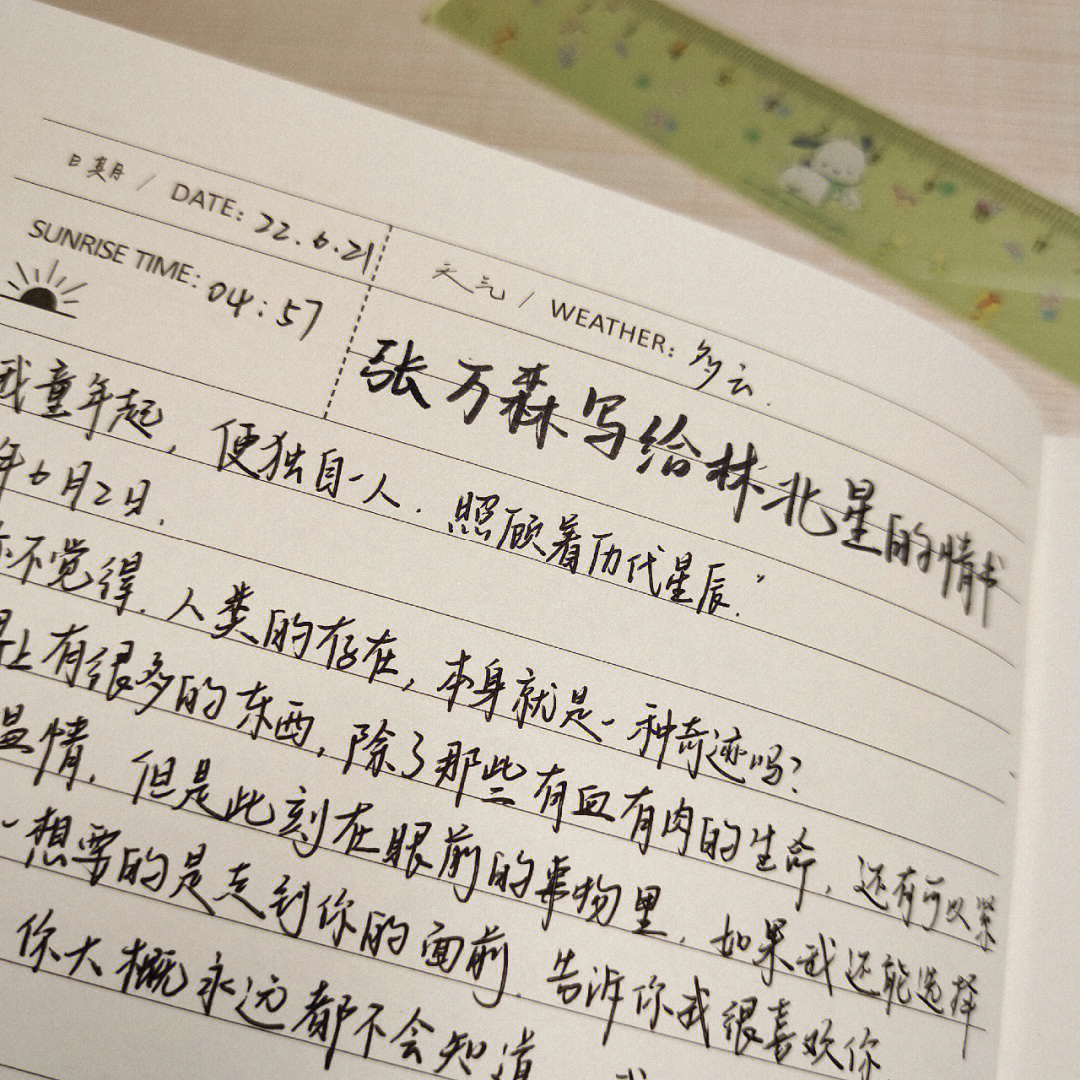 日期 / DATE: 22.6.21
天气 / WEATHER: 多云.
SUNRISE TIME: 04:57
张万森写给林北星的情书
我童年起，便独自一人．照顾着历代星辰．”
年6月2日．
不觉得．人类的存在，本身就是一种奇迹吗？
上有很多的东西，除了那些有血有肉的生命，还有可以
温情．但是此刻在眼前的事物里．如果我还能选择
一想要的是走到你的面前．告诉你我很喜欢你
你大概永远都不会知道